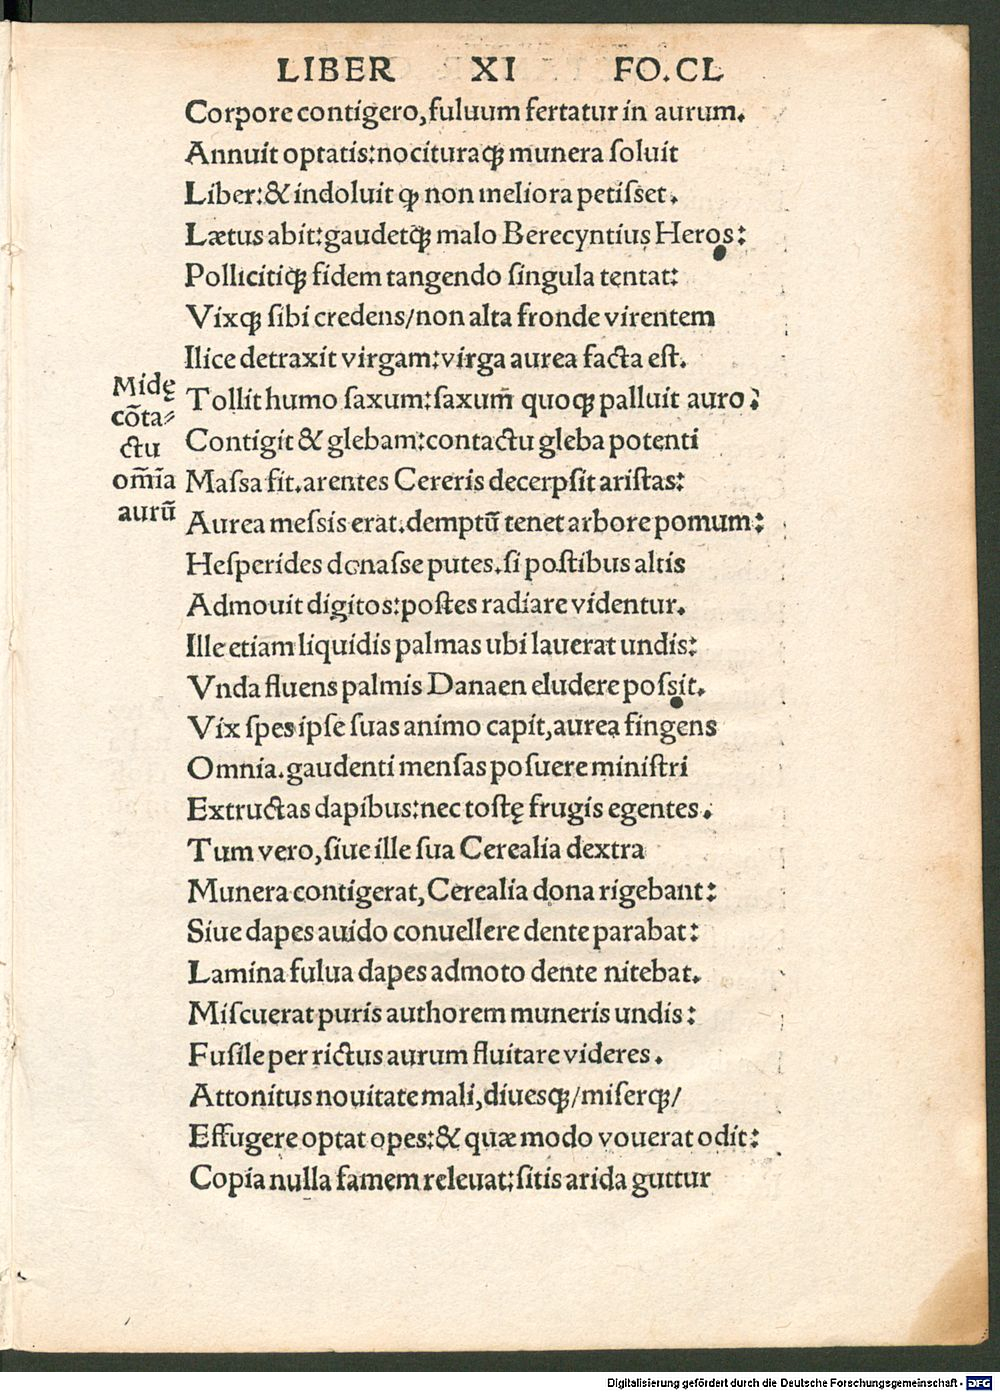 LIBER XI FO.CL
Corpore contigero,fuluum fertatur in aurum.
Annuit optatis:nocituraqꝫ munera ſoluit
Liber:& indoluit ꝙ non meliora petiſset.
Lætus abit:gaudetqꝫ malo Berecyntius Heros:
Pollicitiqꝫ fidem tangendo ſingula tentat:
Vixqꝫ ſibi credens/non alta fronde virentem
Ilice detraxit virgam:virga aurea facta eſt.
Tollit humo ſaxum:ſaxum̄ quoqꝫ palluit auro:
Contigit & glebam:contactu gleba potenti
Maſsa fit.arentes Cereris decerpſit ariſtas:
Aurea meſsis erat.demptū tenet arbore pomum:
Heſperides donaſse putes.ſi poſtibus altis
Admouit digitos:poſtes radiare videntur.
Ille etiam liquidis palmas ubi lauerat undis:
Vnda fluens palmis Danaen eludere poſsit.
Vix ſpes ipſe ſuas animo capit,aurea fingens
Omnia.gaudenti menſas poſuere miniſtri
Extructas dapibus:nec toſtę frugis egentes.
Tum vero,ſiue ille ſua Cerealia dextra
Munera contigerat,Cerealia dona rigebant:
Siue dapes auido conuellere dente parabat:
Lamina fulua dapes admoto dente nitebat.
Miſcuerat puris authorem muneris undis:
Fuſile per rictus aurum fluitare videres.
Attonitus nouitate mali,diuesqꝫ/miſerqꝫ/
Effugere optat opes:& quæ modo vouerat odit:
Copia nulla famem releuat:ſitis arida guttur
Midę
cōta⸗
ctu
om̄ia
aurū
Digitalisierung gefördert durch die Deutsche Forschungsgemeinschaft - DFG